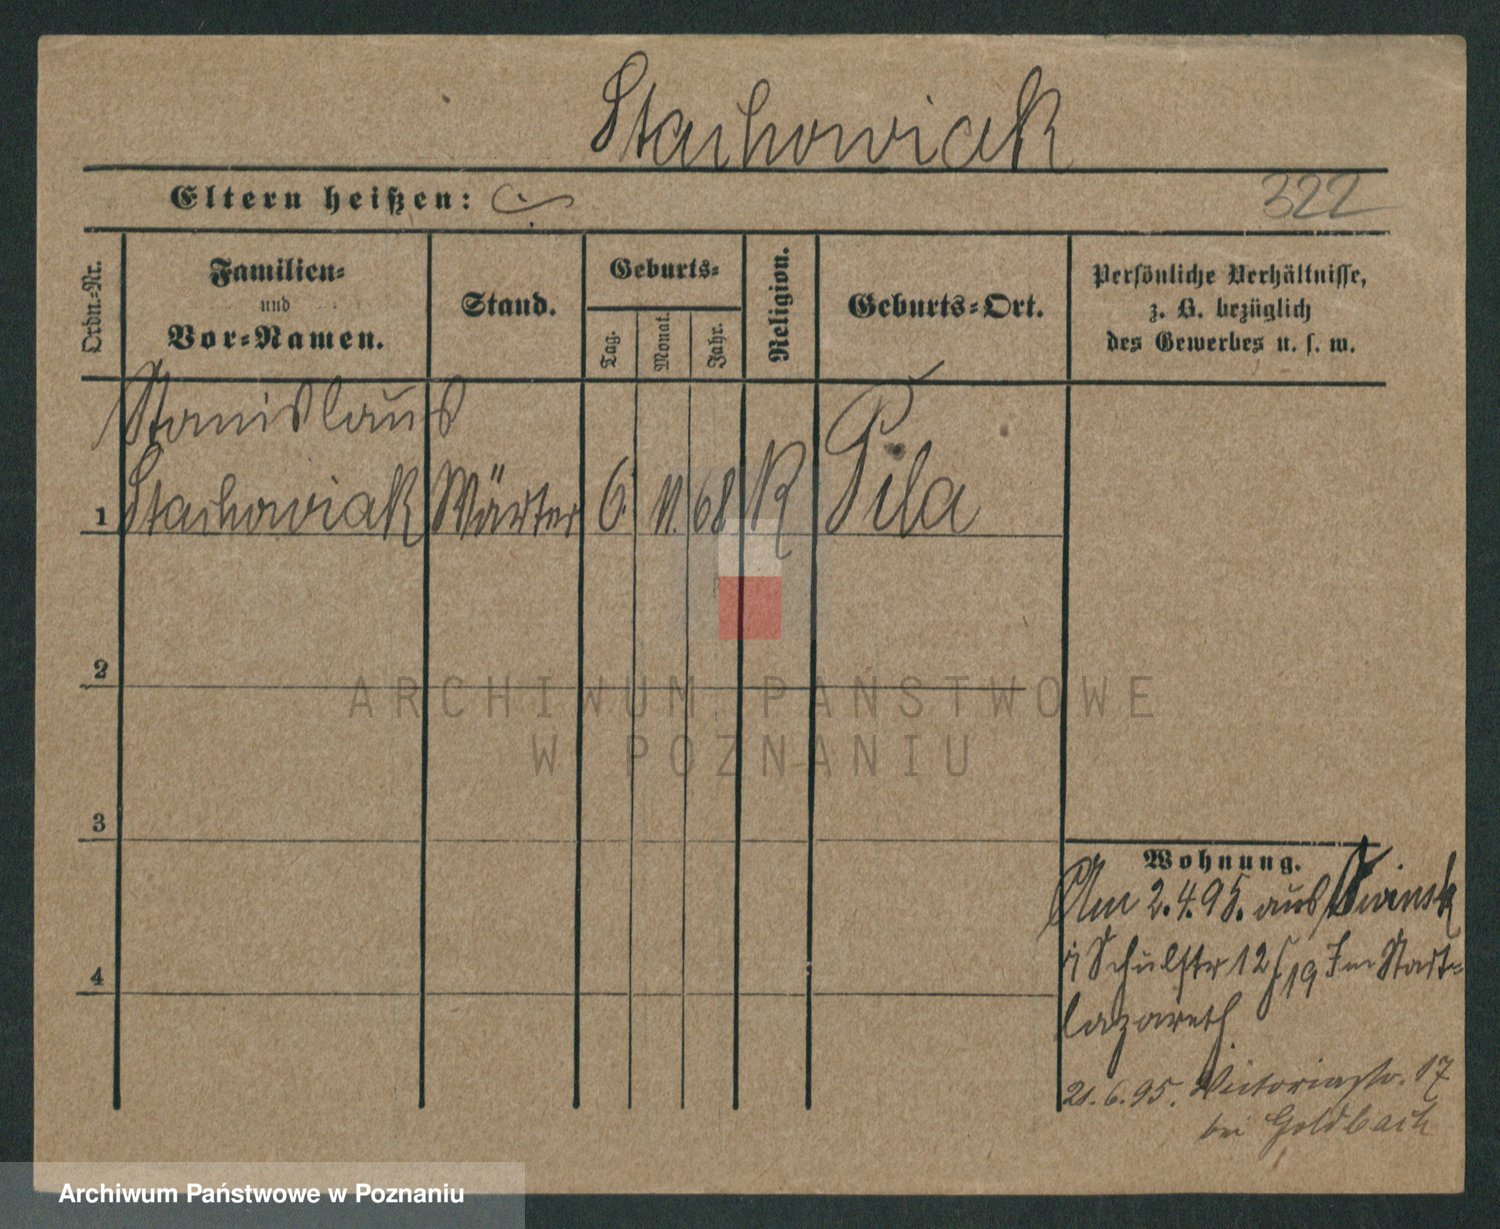 Stachowiak
Eltern heißen:
322
Ordn.-Nr.
Familien-
und
Vor-Namen.
Stand.
Geburts-
Tag.
Monat.
Jahr.
Religion.
Geburts-Ort.
Persönliche Verhältnisse,
z. B. bezüglich
des Gewerbes u. s. w.
Stanislaus
1 Stachowiak Wärter 6. 11. 68 K Pila
2
3
4
Wohnung.
Am 2.4.95. aus
Schulstr 12/19 Im Stadt-
lazareth
21.6.95. Victoriastr. 17
bei Goldbach
ARCHIWUM PAŃSTWOWE
W POZNANIU
Archiwum Państwowe w Poznaniu